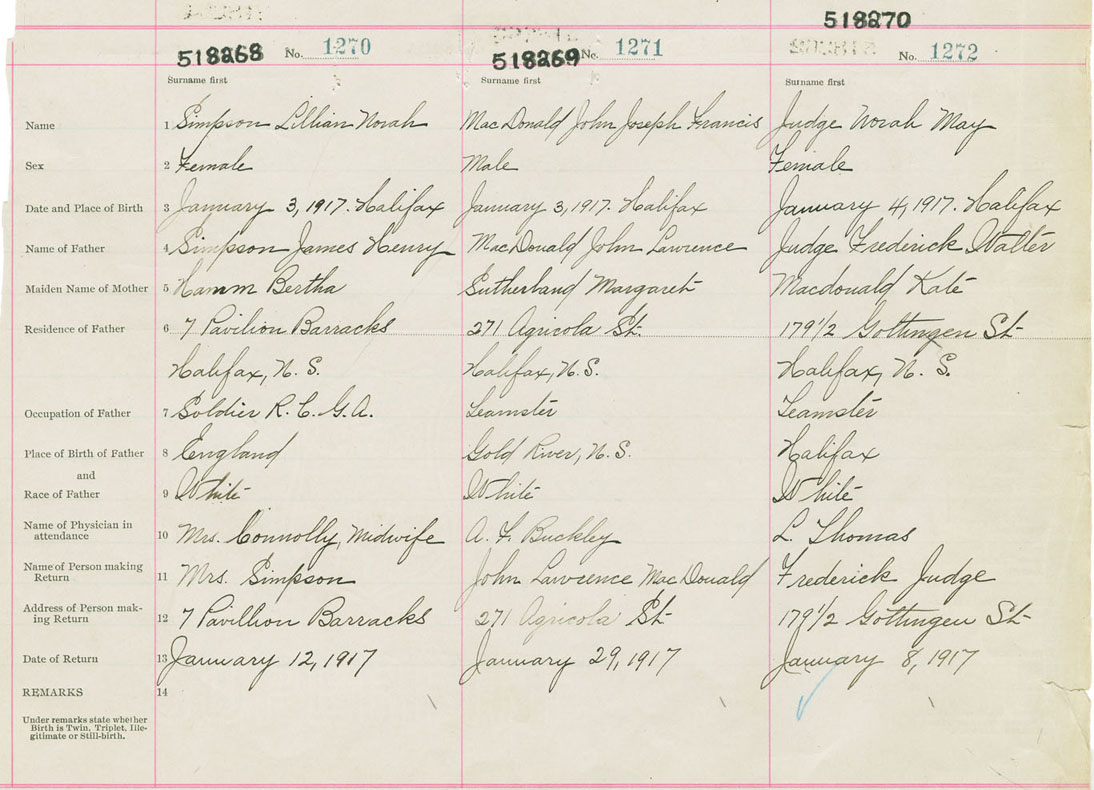 518270
518268 No. 1270 518269 No. 1271 No. 1272
Surname first Surname first Surname first
Name 1 Simpson Lillian Norah MacDonald John Joseph Francis Judge Norah May
Sex 2 Female Male Female
Date and Place of Birth 3 January 3, 1917. Halifax January 3, 1917. Halifax January 4, 1917. Halifax
Name of Father 4 Simpson James Henry MacDonald John Lawrence Judge Frederick Walter
Maiden Name of Mother 5 Hamm Bertha Sutherland Margaret Macdonald Kate
Residence of Father 6 7 Pavilion Barracks 271 Agricola St. 179 1/2 Gottingen St
Halifax, N. S. Halifax, N. S. Halifax, N. S.
Occupation of Father 7 Soldier R. C. G. A. Teamster Teamster
Place of Birth of Father 8 England Gold River, N. S. Halifax
and
Race of Father 9 White White White
Name of Physician in
attendance 10 Mrs. Connolly, Midwife A. F. Buckley L. Thomas
Name of Person making
Return 11 Mrs. Simpson John Lawrence MacDonald Frederick Judge
Address of Person mak-
ing Return 12 7 Pavillion Barracks 271 Agricola St 179 1/2 Gottingen St
Date of Return 13 January 12, 1917 January 29, 1917 January 8, 1917
REMARKS 14
Under remarks state whether
Birth is Twin, Triplet, Ille-
gitimate or Still-birth.